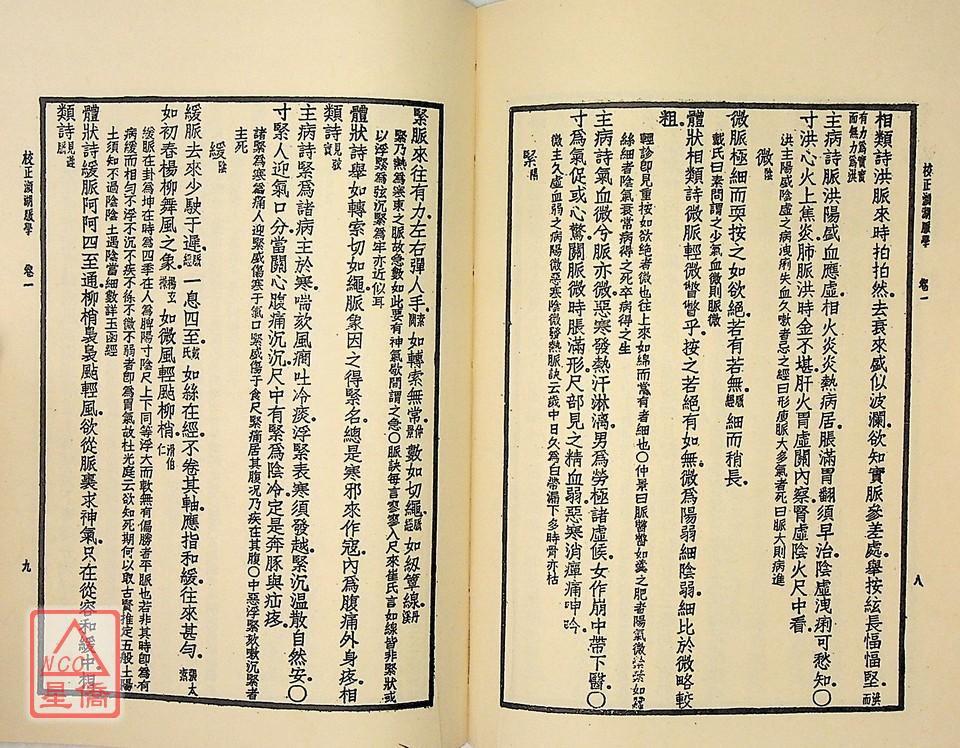 校正瀕湖脈學 卷一 八
相類詩洪脈來時拍拍然去衰來盛似波瀾欲知實脈參差處舉按絃長愊愊堅洪而有力為實實而無力為洪
主病詩脈洪陽盛血應虛相火炎炎熱病居脹滿胃翻須早治陰虛洩痢可愁知〇
寸洪心火上焦炎肺脈洪時金不堪肝火胃虛關內察腎虛陰火尺中看
洪主陽盛陰虛之病洩痢失血久嗽者忌之經曰形瘦脈大多氣者死曰脈大則病進
微陰
微脈極細而耎按之如欲絕若有若無脈經細而稍長
戴氏曰素問謂之少氣血微則脈微
體狀相類詩微脈輕微瞥瞥乎按之若絕有如無微為陽弱細陰弱細比於微略較
粗
輕診卽見重按如欲絕者微也往來如線而常有者細也〇仲景曰脈瞥瞥如羹上肥者陽氣微縈縈如蠶
絲細者陰氣衰常病得之死卒病得之生
主病詩氣血微兮脈亦微惡寒發熱汗淋漓男為勞極諸虛候女作崩中帶下醫〇
寸微氣促或心驚關脈微時脹滿形尺部見之精血弱惡寒消癉痛呻吟
微主久虛血弱之病陽微惡寒陰微發熱脈訣云崩中日久為白帶漏下多時骨亦枯
緊陽
緊脈來往有力左右彈人手素問如轉索無常仲景數如切繩脈經如紉箄線丹溪
緊乃熱為寒束之脈故急數如此要有神氣素問謂之急〇脈訣每言寥寥入尺來崔氏言如線皆非緊狀或
以浮緊為弦沉緊為牢亦近似耳
體狀詩舉如轉索切如繩脈象因之得緊名總是寒邪來作寇內為腹痛外身疼相
類詩見弦實
主病詩緊為諸痛主於寒喘欬風癎吐冷痰浮緊表寒須發越緊沉溫散自然安〇
寸緊人迎氣口分當關心腹痛沉沉尺中有緊為陰冷定是奔豚與疝疼
諸緊為寒為痛人迎緊盛傷於寒氣口緊盛傷于食尺緊痛居其腹况乃疾在其腹〇中惡浮緊欬嗽沉緊者
主死
緩陰
緩脈去來少駛于遲脈經一息四至戴氏如絲在經不卷其軸應指和緩往來甚勻張太素
如初春楊柳舞風之象楊玄操如微風輕颭柳梢滑伯仁
緩脈在卦為坤在時為四季在人為脾陽寸陰尺上下同等浮大而耎無有偏勝者平脈也若非其時卽為有
病緩而和勻不浮不沉不疾不徐不微不弱者卽為胃氣故杜光庭云欲知死期何以取古賢推定五般土陽
土須知不過陰陰土遇陰當細數詳玉函經
體狀詩緩脈阿阿四至通柳梢裊裊颭輕風欲從脈裏求神氣只在從容和緩中相
類詩見遲
校正瀕湖脈學 卷一 九
NCC
星僑